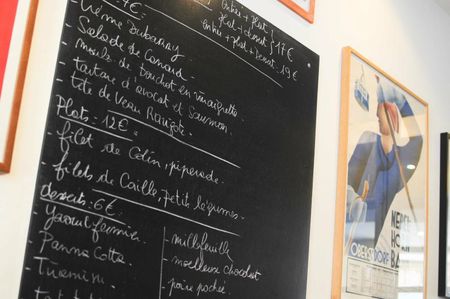 7€.
entrée + plat
plat + dessert } 17€
entrée + plat + dessert 19€
- Crème Dubarry
- Salade de Canard
- moules de bouchot en vinaigrette
- tartare d'avocat et saumon.
- tête de veau Ravigote
Plats: 12€
- filet de Colin, piperade.
- filets de Caille, petits légumes.
desserts: 6€
- Yaourt fermier
- Panna Cotta
- Tiramisu
- millefeuille
- moelleux chocolat
- poire pochée
OBERSTDORF
NEBEL
HORN
BA